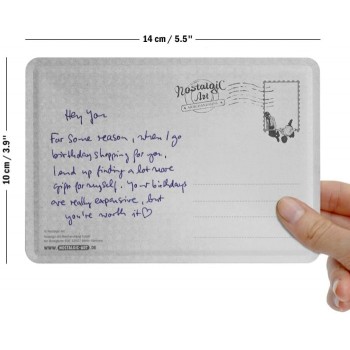 14 cm / 5.5"
10 cm / 3.9"
Nostalgic
Art
Hey You
For some reason, when I go
birthday shopping for you,
I end up finting a lot more
gifts for myself. Your birthdays
are really expensive, but
you're worth it♡
WWW.NOSTALGIC-ART.DE